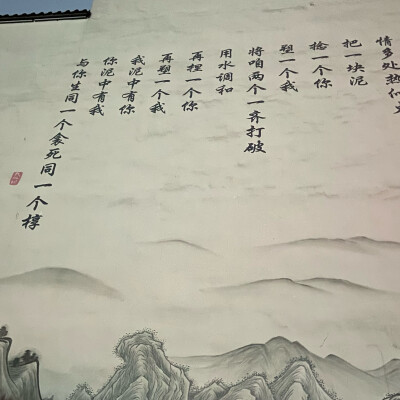 情多处热似火
把一块泥
捻一个你
塑一个我
将咱两个一齐打破
用水调和
再捏一个你
再塑一个我
我泥中有你
你泥中有我
与你生同一个衾死同一个椁